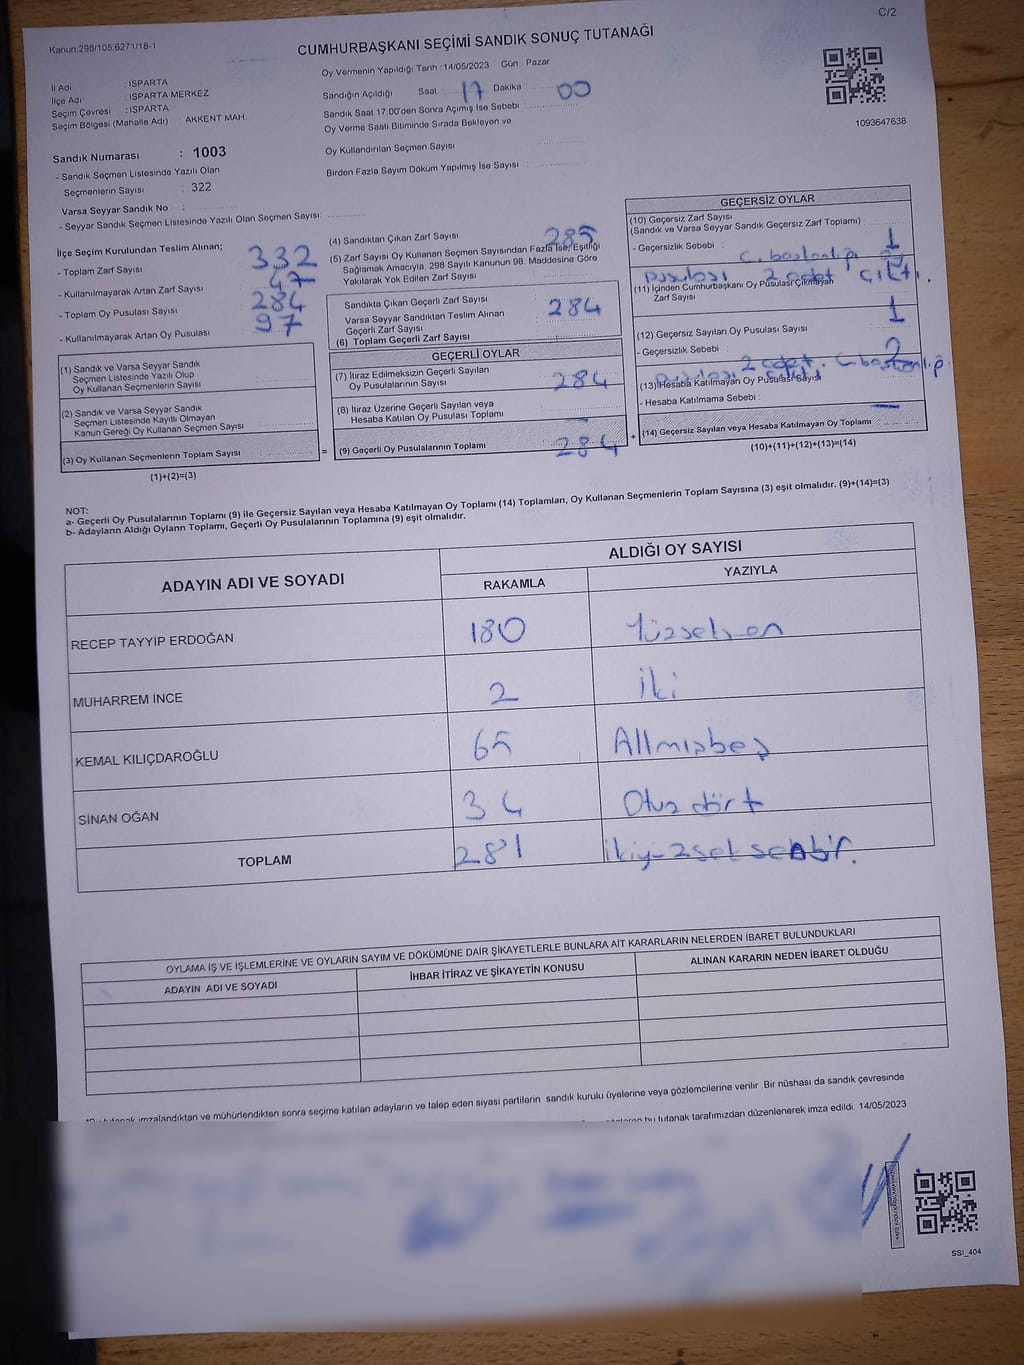 C/2
Kanun,298/105,6271/18-1
CUMHURBAŞKANI SEÇİMİ SANDIK SONUÇ TUTANAĞI
İl Adı : ISPARTA
İlçe Adı : ISPARTA MERKEZ
Seçim Çevresi : ISPARTA
Seçim Bölgesi (Mahalle Adı) : AKKENT MAH.
Oy Vermenin Yapıldığı Tarih :14/05/2023 Gün : Pazar
Sandığın Açıldığı Saat 17 Dakika 00
Sandık Saat 17:00'den Sonra Açımış İse Sebebi :
Oy Verme Saati Bitiminde Sırada Bekleyen ve
Oy Kullandırılan Seçmen Sayısı
Birden Fazla Sayım Döküm Yapılmış İse Sayısı :
1093647638
Sandık Numarası : 1003
- Sandık Seçmen Listesinde Yazılı Olan
Seçmenlerin Sayısı : 322
Varsa Seyyar Sandık No :
- Seyyar Sandık Seçmen Listesinde Yazılı Olan Seçmen Sayısı:
İlçe Seçim Kurulundan Teslim Alınan;
- Toplam Zarf Sayısı 332
- Kullanılmayarak Artan Zarf Sayısı : 47
- Toplam Oy Pusulası Sayısı 284
- Kullanılmayarak Artan Oy Pusulası 97
(1) Sandık ve Varsa Seyyar Sandık
Seçmen Listesinde Yazılı Olup
Oy Kullanan Seçmenlerin Sayısı
(2) Sandık ve Varsa Seyyar Sandık
Seçmen Listesinde Kayıtlı Olmayan
Kanun Gereği Oy Kullanan Seçmen Sayısı
(3) Oy Kullanan Seçmenlerin Toplam Sayısı
(1)+(2)=(3)
(4) Sandıktan Çıkan Zarf Sayısı 285
(5) Zarf Sayısı Oy Kullanan Seçmen Sayısından Fazla İse, Eşitliği
Sağlamak Amacıyla, 298 Sayılı Kanunun 98. Maddesine Göre
Yakılarak Yok Edilen Zarf Sayısı
Sandıkta Çıkan Geçerli Zarf Sayısı 284
Varsa Seyyar Sandıktan Teslim Alınan
Geçerli Zarf Sayısı
(6) Toplam Geçerli Zarf Sayısı
GEÇERLİ OYLAR
(7) İtiraz Edilmeksizin Geçerli Sayılan
Oy Pusulalarının Sayısı 284
(8) İtiraz Üzerine Geçerli Sayılan veya
Hesaba Katılan Oy Pusulası Toplamı
= (9) Geçerli Oy Pusulalarının Toplamı 284 +
GEÇERSİZ OYLAR
(10) Geçersiz Zarf Sayısı
(Sandık ve Varsa Seyyar Sandık Geçersiz Zarf Toplamı) : 1
- Geçersizlik Sebebi : C.başkanlığı oy
pusulası 2 adet çıktı.
(11) İçinden Cumhurbaşkanı Oy Pusulası Çıkmayan
Zarf Sayısı 1
(12) Geçersiz Sayılan Oy Pusulası Sayısı 2
- Geçersizlik Sebebi : 2 adet. C başkanlığı
(13) Hesaba Katılmayan Oy Pusulası Sayısı
- Hesaba Katılmama Sebebi : —
(14) Geçersiz Sayılan veya Hesaba Katılmayan Oy Toplamı :
(10)+(11)+(12)+(13)=(14)
NOT:
a- Geçerli Oy Pusulalarının Toplamı (9) ile Geçersiz Sayılan veya Hesaba Katılmayan Oy Toplamı (14) Toplamları, Oy Kullanan Seçmenlerin Toplam Sayısına (3) eşit olmalıdır. (9)+(14)=(3)
b- Adayların Aldığı Oyların Toplamı, Geçerli Oy Pusulalarının Toplamına (9) eşit olmalıdır.
ADAYIN ADI VE SOYADI ALDIĞI OY SAYISI
RAKAMLA YAZIYLA
RECEP TAYYİP ERDOĞAN 180 Yüzseksen
MUHARREM İNCE 2 İki
KEMAL KILIÇDAROĞLU 65 Altmışbeş
SİNAN OĞAN 34 Otuz dört
TOPLAM 281 İkiyüzseksenbir.
OYLAMA İŞ VE İŞLEMLERİNE VE OYLARIN SAYIM VE DÖKÜMÜNE DAİR ŞİKAYETLERLE BUNLARA AİT KARARLARIN NELERDEN İBARET BULUNDUKLARI
ADAYIN ADI VE SOYADI İHBAR İTİRAZ VE ŞİKAYETİN KONUSU ALINAN KARARIN NEDEN İBARET OLDUĞU
tutanak imzalandıktan ve mühürlendikten sonra seçime katılan adayların ve talep eden siyasi partilerin sandık kurulu üyelerine veya gözlemcilerine verilir .Bir nüshası da sandık çevresinde
bu tutanak tarafımızdan düzenlenerek imza edildi 14/05/2023
SSI_404